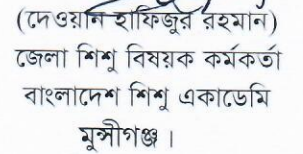 (দেওয়ান হাফিজুর রহমান)
জেলা শিশু বিষয়ক কর্মকর্তা
বাংলাদেশ শিশু একাডেমি
মুন্সীগঞ্জ ।